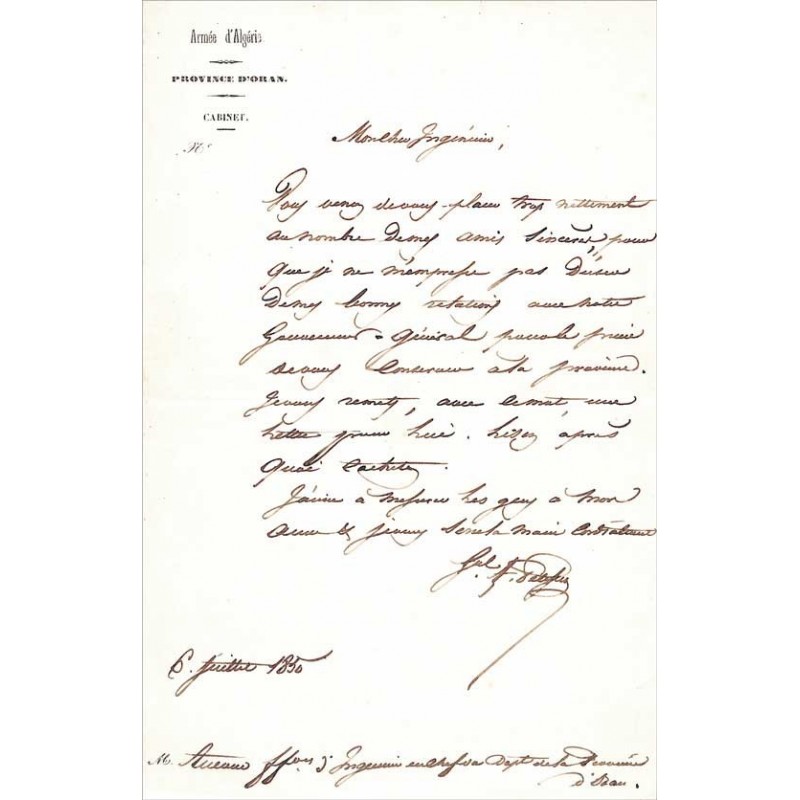 Armée d'Algérie
PROVINCE D'ORAN.
CABINET.
N°
Mon cher Ingénieur,
Vous venez de vous placer trop nettement
au nombre de mes amis sincères, pour
que je ne m'empresse pas d'user
de mes bonnes relations avec notre
Gouverneur Général pour le prier
de vous conserver à la province.
Je vous remets, avec ce mot une
lettre pour lui. Lisez, après
quoi cachetez.
J'aime à mesurer les gens à mon
aune & je vous serre la main cordialement
Gal
6. Juillet 1850
M. Aucour ffons d' Ingénieur en chef du Dépt de la Province
d'Oran.